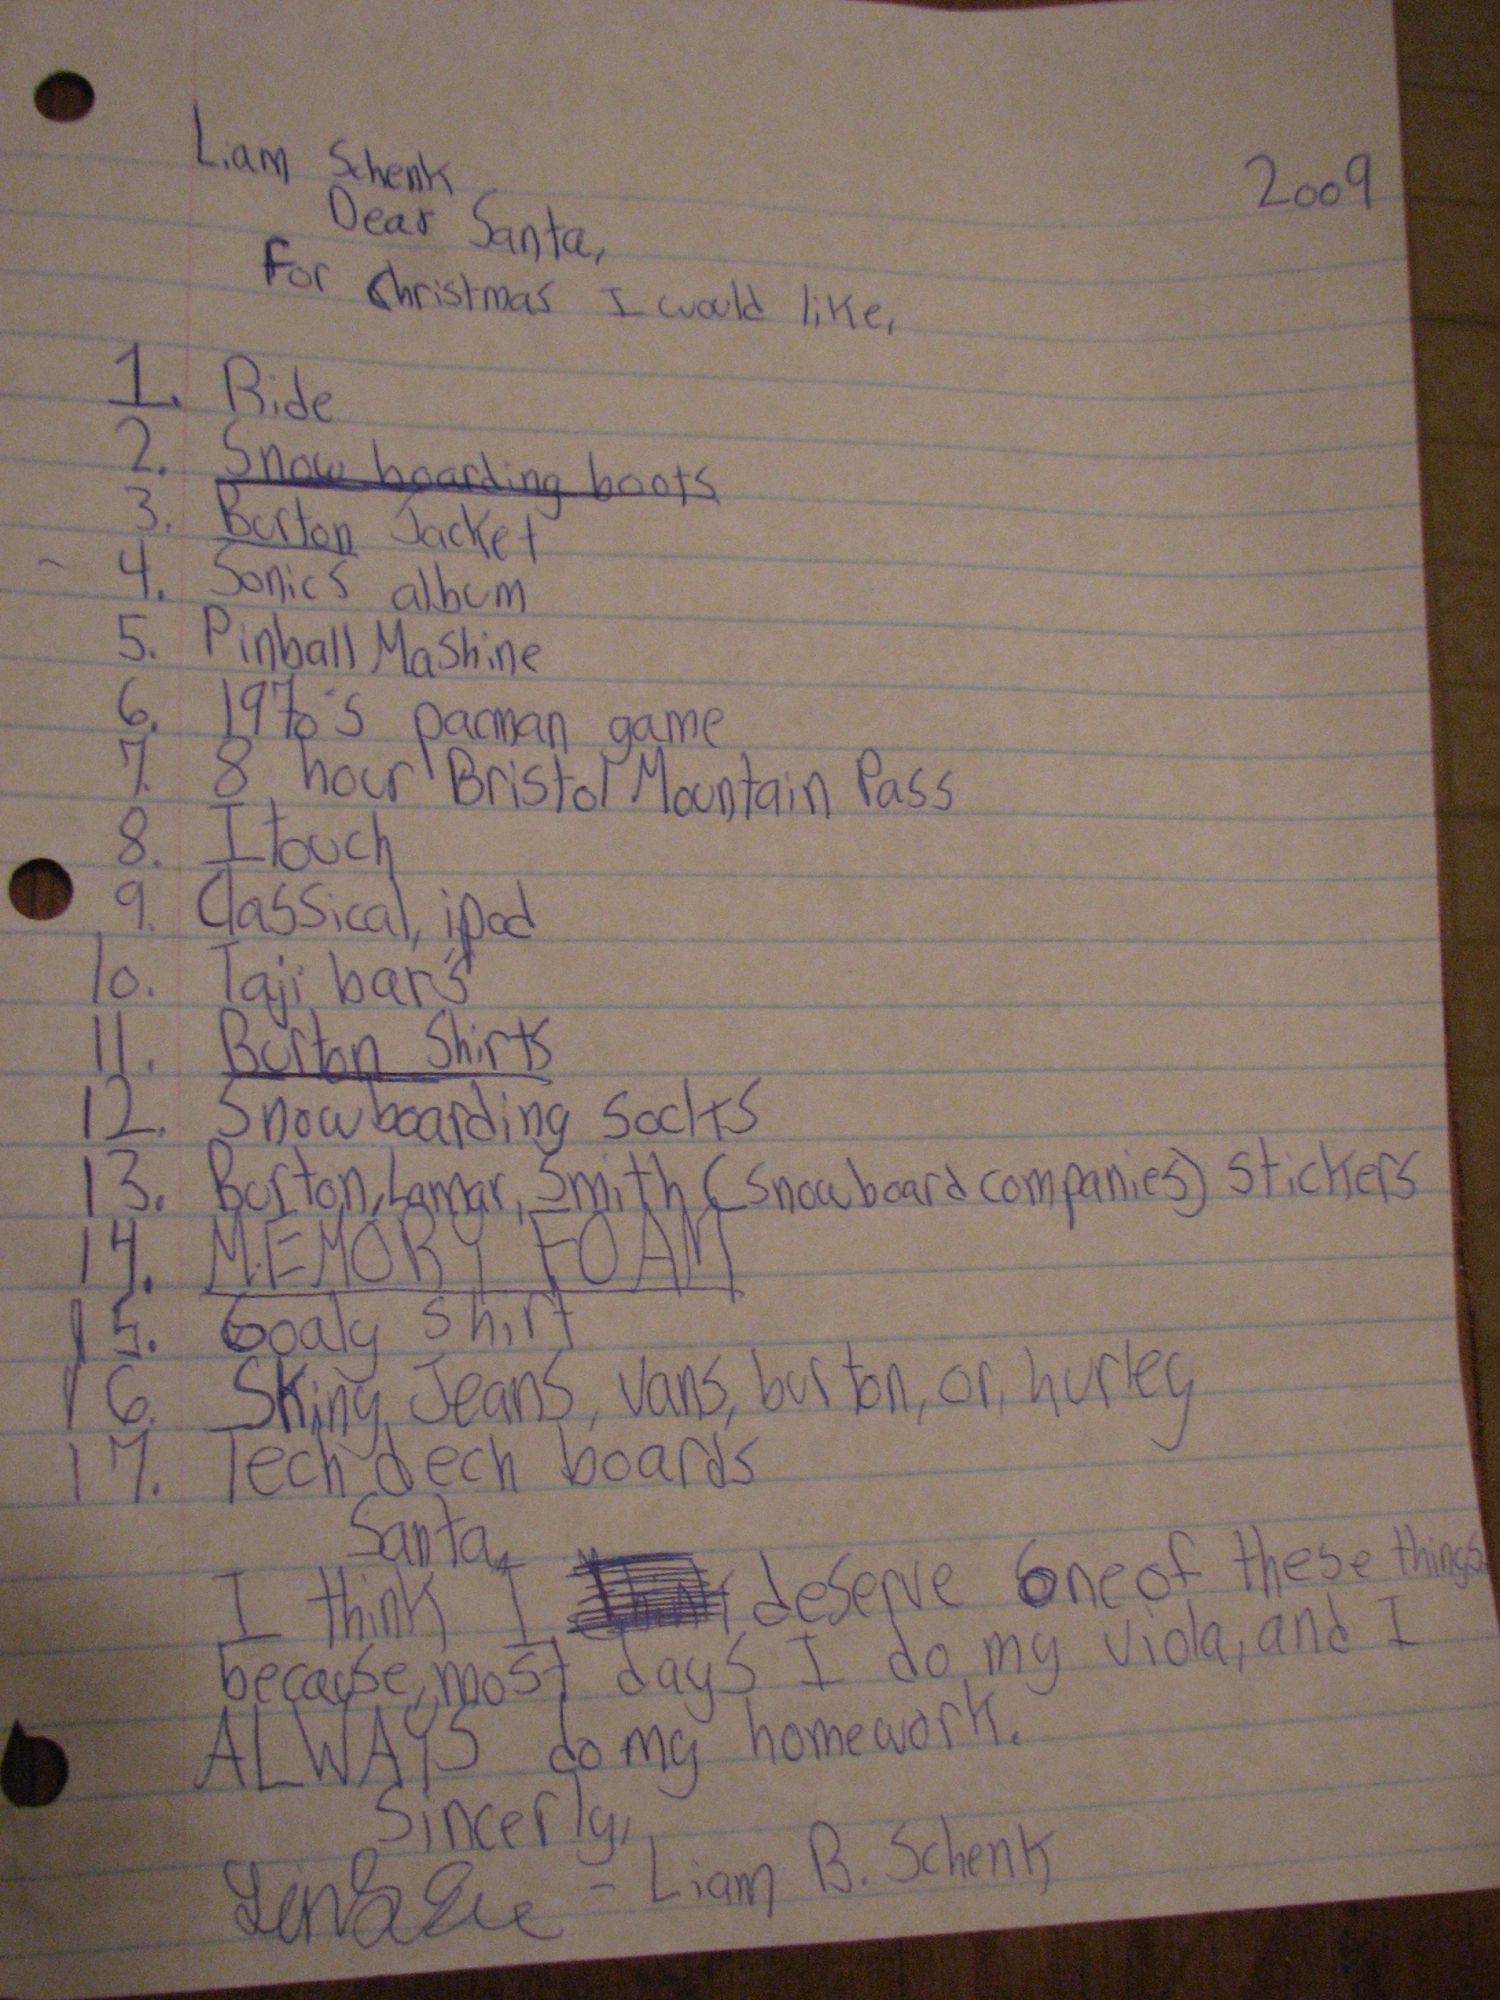 Liam Schenk
2009
Dear Santa,
For Christmas I would like,
1. Ride
2. Snow boarding boots
3. Burton Jacket
4. Sonics album
5. Pinball Mashine
6. 1970's pacman game
7. 8 hour Bristol Mountain Pass
8. I touch
9. Classical, ipod
10. Taji bar's
11. Burton Shirts
12. Snowboarding socks
13. Burton, Lamar, Smith (snowboard companies) stickers
14. MEMORY FOAM
15. Goaly shirt
16. Skiny Jeans, vans, burton, or, hurley
17. Tech dech boards
Santa,
I think I deserve one of these things
because, most days I do my viola, and I
ALWAYS do my homework.
Sincerly,
- Liam B. Schenk